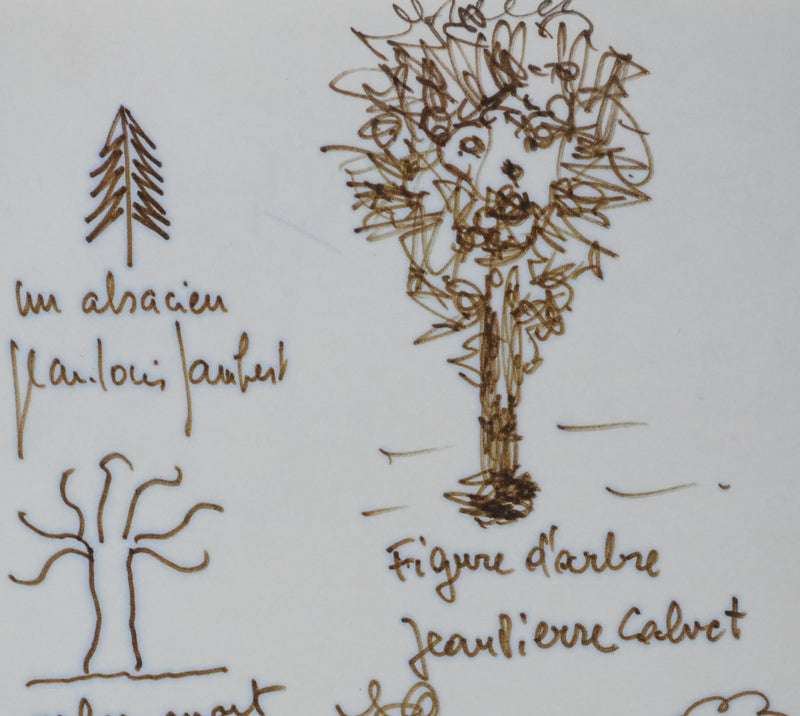 un alsacien
Jean-louis Jambert
Figure d'arbre
Jean Pierre Calvet
mort